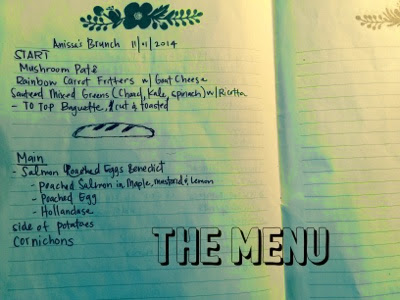 Anissa's Brunch 11/01/2014
START
Mushroom Paté
Rainbow Carrot Fritters w/ Goat Cheese
Sauteed Mixed Greens (Chard, Kale, spinach) w/ Ricotta
- TO TOP Baguette, cut & toasted
Main
- Salmon Poached Eggs Benedict
- Poached Salmon in Maple, mustard & Lemon
- Poached Egg
- Hollandase
side of potatoes
cornichons
THE MENU